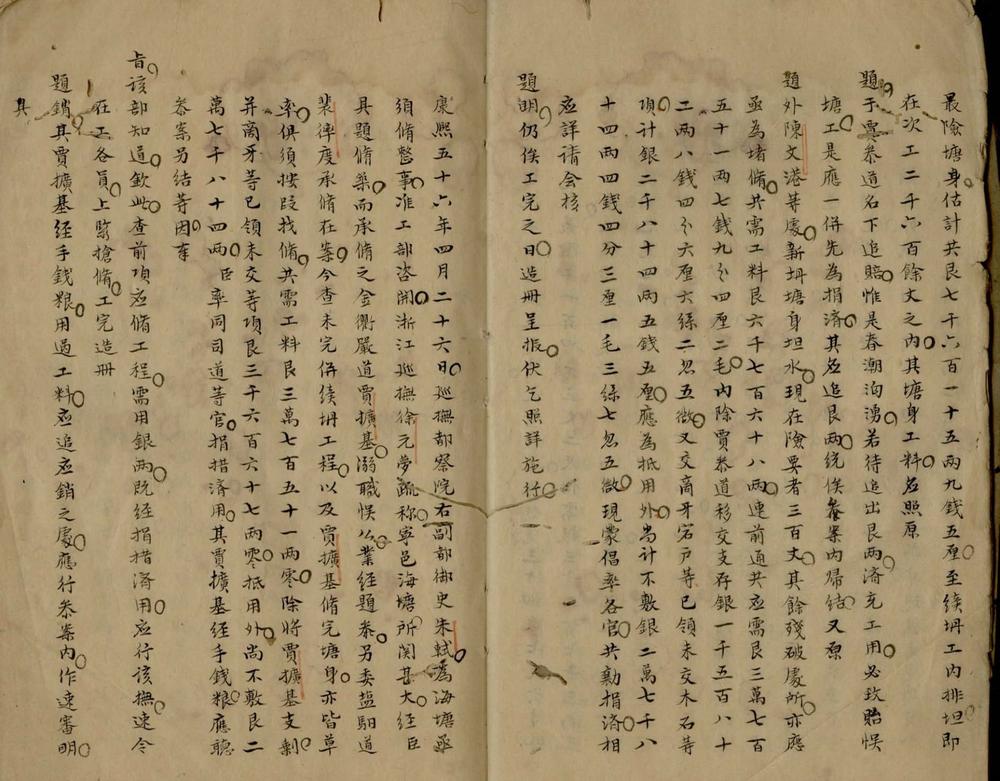 最險塘身估計共艮七千六百一十五兩九錢五厘至續坍工內排坦即
在次工二千六百餘丈之內其塘身工料應照原
題于賈叅道名下追賠惟是春潮洶湧若待追出艮兩済充工用必致貽悮
塘工是應一併先為捐済其应追艮兩統俟叅案內帰結又原
題外陳文港等處新坍塘身坦水現在險要者三百丈其餘殘破處所亦應
亟為堵脩共需工料艮六千七百六十八兩連前通共应需艮三萬七百
五十一兩七錢九分四厘二毛內除賈叅道移交支存銀一千五百八十
二兩八錢四分六厘六絲二忽五微又交商牙宕戶等已領未交木石等
項計銀二千八十四兩五錢五厘應為抵用外尚計不敷銀二萬七千八
十四兩四錢四分三厘一毛三絲七忽五微現蒙倡率各官共勷捐済相
应詳請会核
題明仍俟工完之日造冊呈报伏乞照詳施行
康熙五十六年四月二十六日巡撫都察院右副都御史朱軾為海塘亟
須脩整事准工部咨開浙江巡撫徐元夢疏称寧邑海塘所関甚大經臣
具題脩築而承脩之金衢嚴道賈擴基溺職悮公業經題叅另委塩駅道
裴𢓡度承脩在案今查未完併續坍工程以及賈擴基脩完塘身亦皆草
率俱須按段找脩共需工料艮三萬七百五十一兩零除將賈擴基支剩
并商牙等已領未交等項艮三千六百六十七兩零抵用外尚不敷艮二
萬七千八十四兩臣率同司道等官捐措済用其賈擴基經手錢粮應聽
叅案另結等因奉
旨該部知道欽此查前項应脩工程需用銀兩既經捐措済用应行該撫速令
在工各員上緊搶脩工完造冊
題銷其賈擴基經手錢粮用過工料应追应銷之處應行叅案內作速審明
具